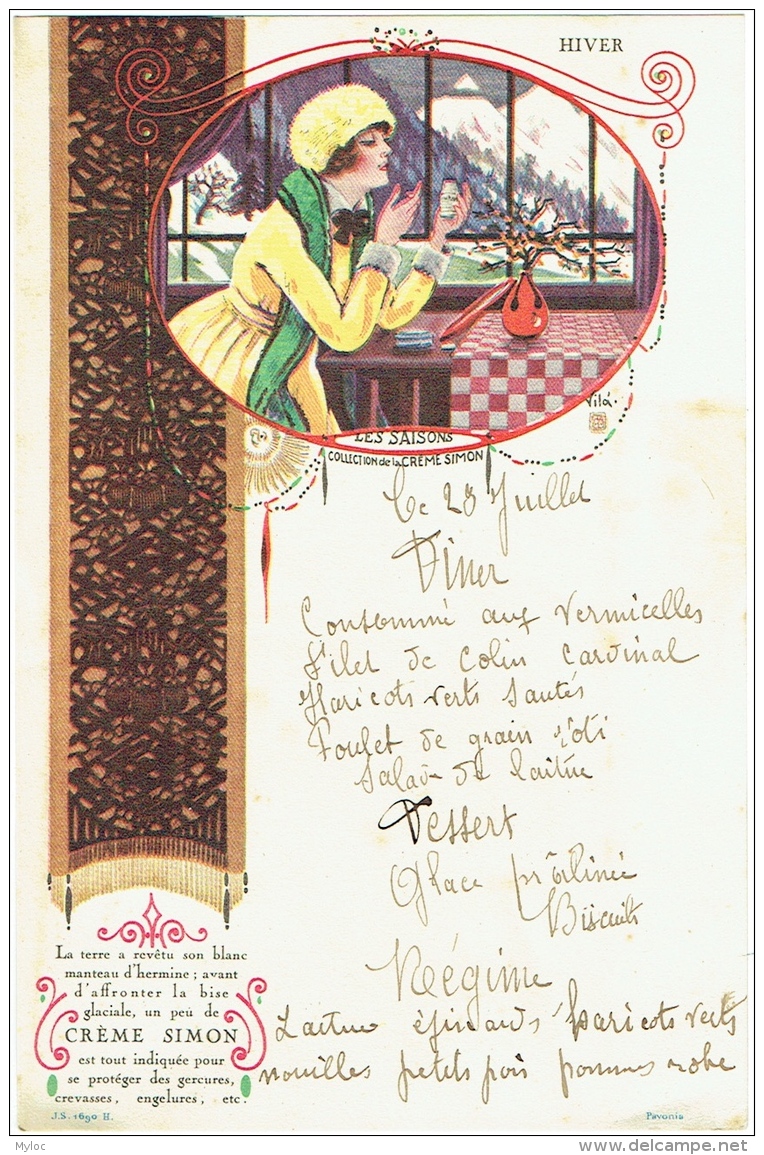 HIVER
Vila.
LES SAISONS
COLLECTION de la CRÈME SIMON
Le 28 Juillet
Diner
Consommé aux Vermicelles
Filet de Colin Cardinal
Haricots verts Sautés
Poulet de grain rôti
Salade de laitue
Dessert
Glace prâlinée
Biscuits
Régime
Laitue épinards haricots verts
nouilles petits pois pommes robe
La terre a revêtu son blanc
manteau d'hermine ; avant
d'affronter la bise
glaciale, un peu de
CRÈME SIMON
est tout indiquée pour
se protéger des gerçures,
crevasses, engelures, etc.
J.S. 1690 H.
Pavonia
Myloc
delcampe.net